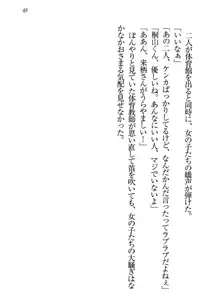 69
二人が体育館を出ると同時に、女の子たちの嬌声が弾けた。
「いいなぁ」
「あの二人、ケンカばっかりしてるけど、なんだかんだ言ったってラブラブだよねぇ」
「桐山くん、優しいね。あんないい人、マジでいないよ」
「ああん、来栖さんがうらやましい…!」
ぼんやりと見ていた体育教師が思い直して笛を吹いても、女の子たちの大騒ぎはな
かなかおさまる気配を見せなかった。